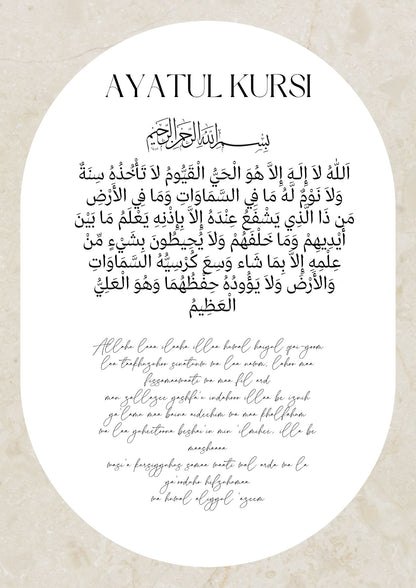 AYATUL KURSI
بِسْمِ اللهِ الرَّحْمٰنِ الرَّحِيْمِ
اَللّٰهُ لاَ إِلَـهَ إِلاَّ هُوَ الْحَيُّ الْقَيُّومُ لاَ تَأْخُذُهُ سِنَةٌ
وَلاَ نَوْمٌ لَّهُ مَا فِي السَّمَاوَاتِ وَمَا فِي الأَرْضِ
مَن ذَا الَّذِي يَشْفَعُ عِنْدَهُ إِلاَّ بِإِذْنِهِ يَعْلَمُ مَا بَيْنَ
أَيْدِيهِمْ وَمَا خَلْفَهُمْ وَلاَ يُحِيطُونَ بِشَيْءٍ مِّنْ
عِلْمِهِ إِلاَّ بِمَا شَاء وَسِعَ كُرْسِيُّهُ السَّمَاوَاتِ
وَالأَرْضَ وَلاَ يَؤُودُهُ حِفْظُهُمَا وَهُوَ الْعَلِيُّ
الْعَظِيمُ
Allaho laaa ilaaha illaa howal haiyol qai-yoom
laa taakhozohoo sinatonw wa laa nawm, lahoo maa
fissamaawaati wa maa fil ard
man zallazee yashfa'o indahooo illaa be iznih
ya'lamo maa baina aideehim wa maa khalfaham
wa laa yoheetoona beshai'in min 'ilmihee, illa be
maashaaaa
wasi'a korsiyyohos samaa waati wal arda wa la
ya'oodoho hifzohomaa
wa howal aliyyol 'azeem